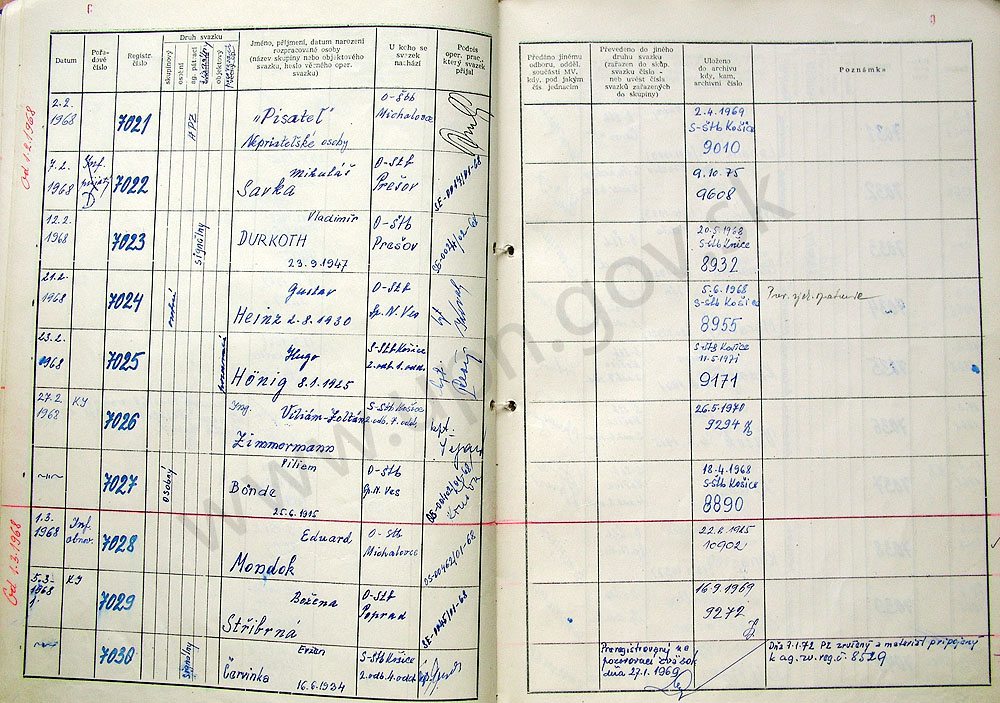 Datum
Pořadové číslo
Registr. číslo
Druh svazku
skupinový
osobní
objektový
Jméno, příjmení, datum narození
rozpracované osoby
(název skupiny nebo objektového
svazku, heslo věného oper.
svazku)
U koho se
svazek
nachází
Podpis
oper. prac.,
který svazek
přijal
Od 1.2.1968
2.2. 1968
7021
APZ
„Pisateľ"
Nepriateľské osoby
O-Štb
Michalovce
7.2. 1968
Inf.
7022
Mikuláš
Savka
O-Štb
Prešov
12.2. 1968
7023
signálny
Vladimír
DURKOTH
23.9.1947
O-Štb
Prešov
21.2. 1968
7024
osobní
Gustav
Heinz 2.8.1930
O-Štb
Sp.N.Ves
23.2. 1968
7025
Hugo
Hönig 8.1.1925
S-Štb Košice
2.odb.1.odd.
27.2. 1968
KJ
7026
Ing.
Viliám-Zoltán
Zimmermann
S-Štb Košice
2.odb.7.odd.
—"—
7027
osobný
Filiem
Bónde
25.6.1915
O-Štb
Sp.N.Ves
Od 1.3.1968
1.3. 1968
Inf.
obnov.
7028
Eduard
Mondok
O-Štb
Michalovce
OS-00462/01-68
5.3. 1968
KJ
7029
Božena
Stříbrná
O-Štb
Poprad
SE-0045/01-68
7030
signálny
Ervín
Červinka
16.6.1934
S-Štb Košice
2.odb.4.odd
Předáno jinému
odboru, odděl.
součásti MV.
kdy, pod jakým
čís. jednacím
Převedeno do jiného
druhu svazku
(zařazen do skup.
svazku číslo -
neb uvést čísla
svazků zařazených
do skupiny)
Uloženo
do archivu
kdy, kam,
archivní číslo
Poznámka
2.4.1969
S-Štb Košice
9010
9.10.75
9608
20.5.1968
S-Štb Košice
8932
5.6.1968
S-Štb Košice
8955
S-Štb Košice
11.5.1971
9171
26.5.1970
9294
18.4.1968
S-Štb Košice
8890
10902
16.9.1969
9272
Preregistrovaný na
pozorovací zväzok
dňa 27.1.1969
Dňa 7.1.72 PZ zrušený a materiál pripojený
k ag.zv.reg.č. 8529
www.upn.gov.sk